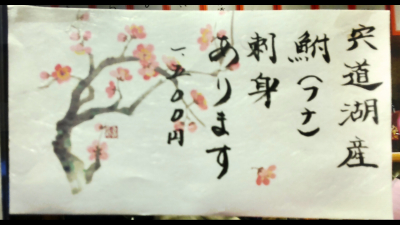 宍道湖産
鮒(フナ)
刺身
あります
一、五〇〇円